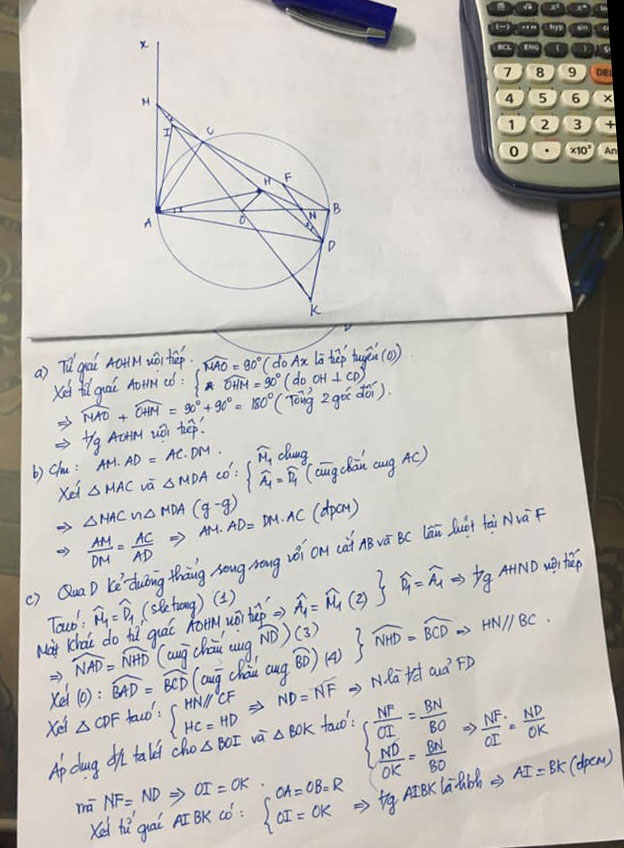 x
M
I
C
H
F
A
O
N
B
D
K
BCL ENG
7 8 9 DEL
4 5 6 ×
1 2 3 +
0 • ×10ˣ Ans
a) Tứ giác AOHM nội tiếp.
Xét tứ giác AOHM có: { M̂AO = 90° (do Ax là tiếp tuyến (O))
ÔHM = 90° (do OH ⊥ CD)
⇒ M̂AO + ÔHM = 90° + 90° = 180° (Tổng 2 góc đối).
⇒ t/g AOHM nội tiếp.
b) C/m: AM.AD = AC.DM.
Xét △MAC và △MDA có: { M̂₁ chung
Â₁ = D̂₁ (cùng chắn cung AC)
⇒ △MAC ∽ △MDA (g-g)
⇒ AM/DM = AC/AD ⇒ AM.AD = DM.AC (đpcm)
c) Qua D kẻ đường thẳng song song với OM cắt AB và BC lần lượt tại N và F
Ta có: M̂₁ = D̂₁ (sle trong) (1)
Mặt khác do tứ giác AOHM nội tiếp ⇒ Â₁ = M̂₁ (2) } D̂₁ = Â₁ ⇒ t/g AHND nội tiếp
⇒ N̂AD = N̂HD (cùng chắn cung ND) (3)
Xét (O): B̂AD = B̂CD (cùng chắn cung BD) (4) } N̂HD = B̂CD ⇒ HN // BC.
Xét △CDF ta có: { HN // CF
HC = HD ⇒ ND = NF ⇒ N là t/đ của FD
Áp dụng đ/l ta lét cho △BOI và △BOK ta có: { NF/OI = BN/BO
ND/OK = BN/BO ⇒ NF/OI = ND/OK
mà NF = ND ⇒ OI = OK.
Xét tứ giác AIBK có: { OA = OB = R
OI = OK ⇒ t/g AIBK là hbh ⇒ AI = BK (đpcm)